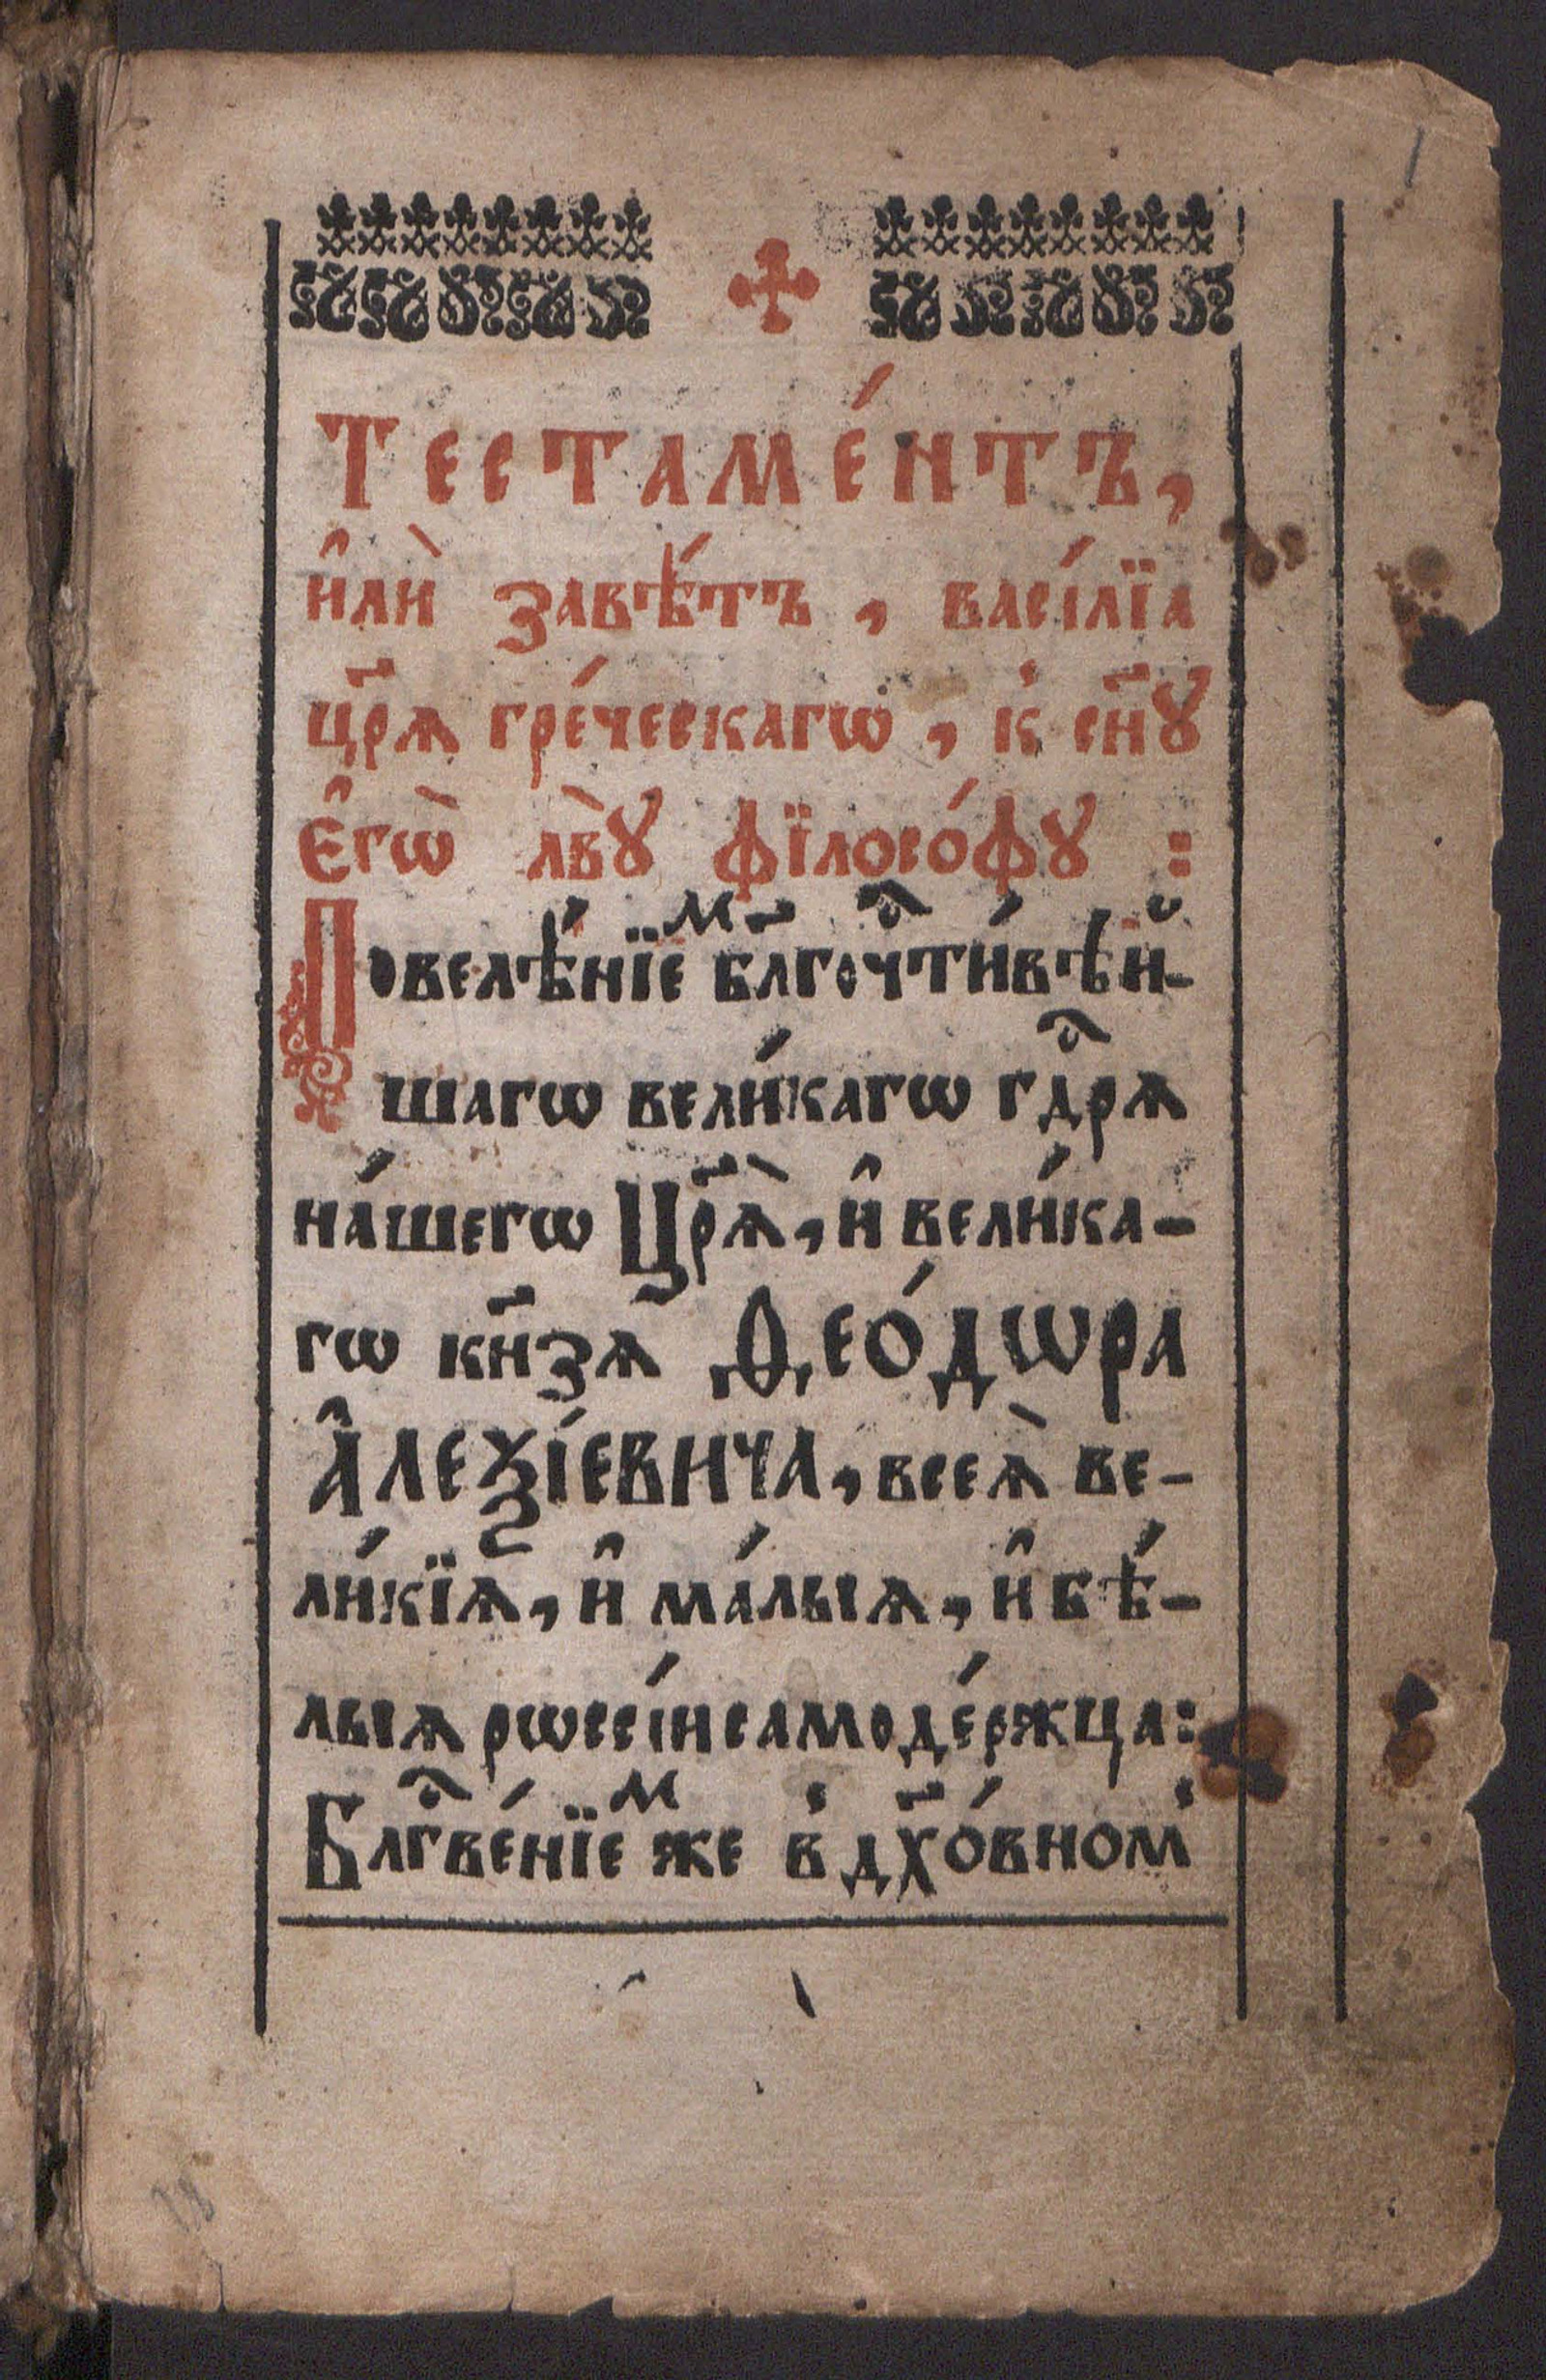 Тестаме́нтъ,
и҆лѝ завѣ́тъ, васі́лїа
цр҃ѧ гре́ческагѡ, к̾ сн҃ꙋ
є҆гѡ̀ льву̀ фїлосо́фꙋ :
Повелѣ́нїеⷨ бл҃гочⷭ҇ти́вѣй-
шагѡ вели́кагѡ гдⷭ҇рѧ
на́шегѡ Цр҃ѧ̀, и҆ вели́ка-
гѡ кн҃зѧ Ѳео́дѡра
А҆леѯі́евича, всеѧ̀ ве-
ли́кїѧ, и҆ ма́лыѧ, и҆ бѣ́-
лыѧ рѡссі́и самоде́ржца:
Блгⷭ҇ве́нїеⷨ же в̾ дх҃о́вном̾